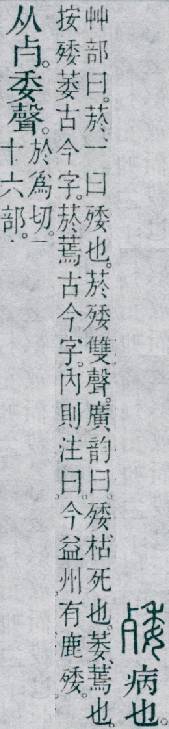 㱧病也。
艸部曰。菸、一曰㱧也。菸㱧雙聲。廣韵曰。㱧枯死也。萎、蔫也。
按㱧萎古今字。菸蔫古今字。內則注曰。今益州有鹿㱧。
从歺。委聲。
於爲切。
十六部。